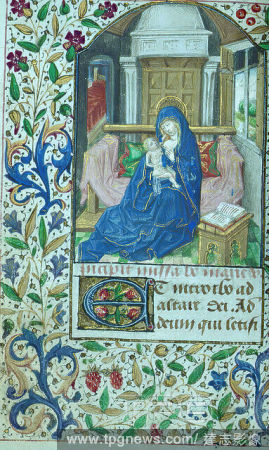 Incipit missa be marie v
Et introibo ad
altare dei. Ad
deum qui letifi
www.tpgnews.com/看志影像